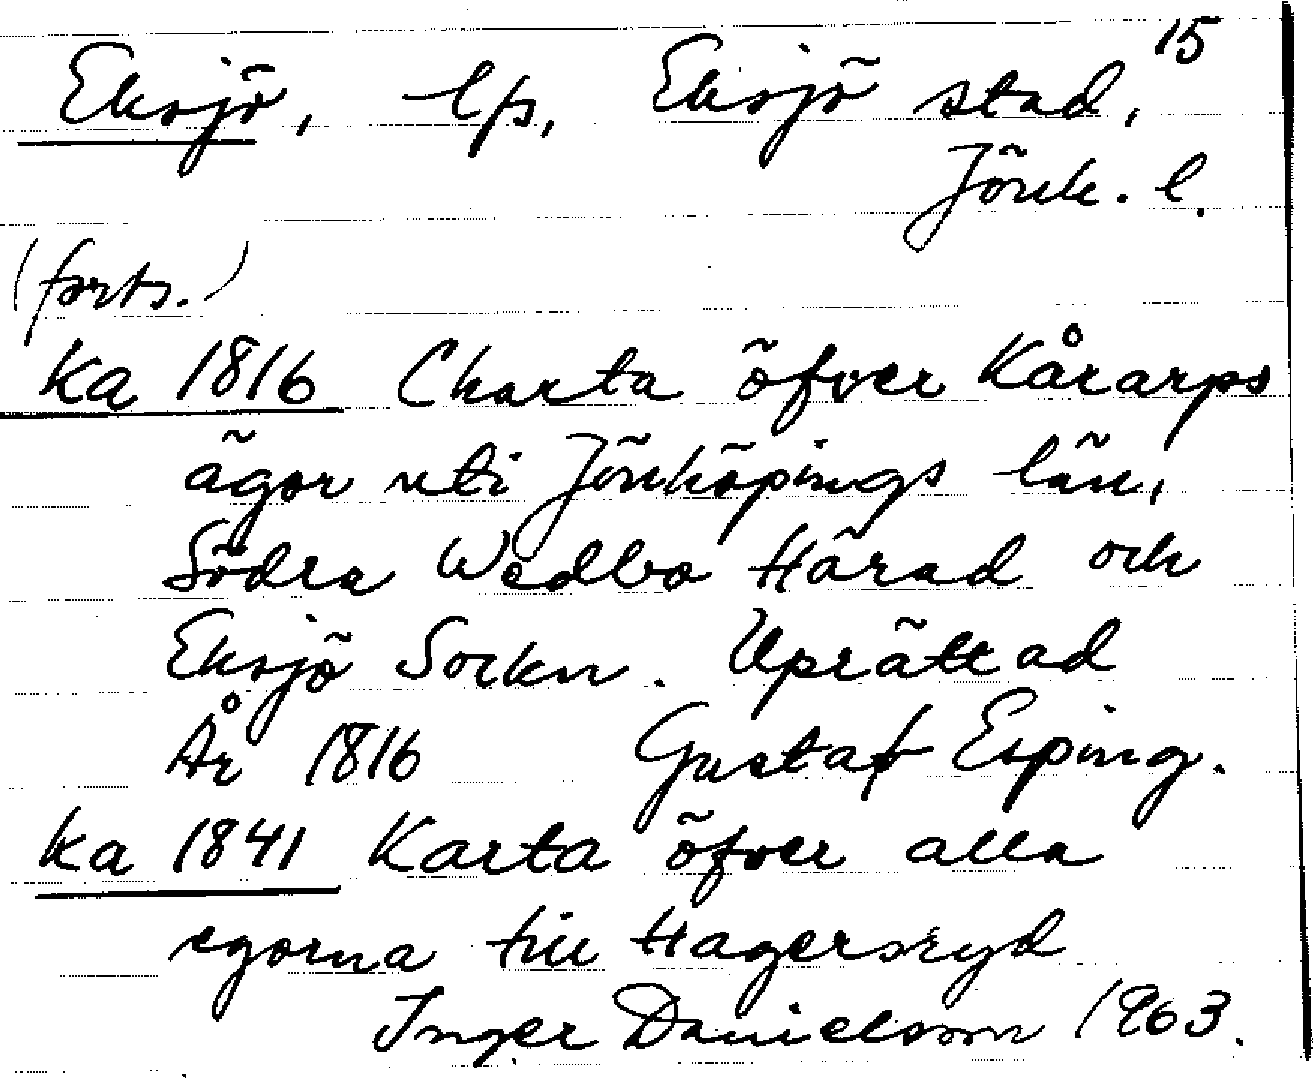 15
Eksjö, lfs, Eksjö stad,
Jönk. l.
(forts.)
ka 1816 Charta öfver Kårarps
ägor uti Jönköpings län,
Södra Wedbo Härad och
Eksjö Sockn. Uprättad
År 1816 Gustaf Esping.
ka 1841 Karta öfver alla
egorna till Hagersryd
Inger Danielsson 1963.